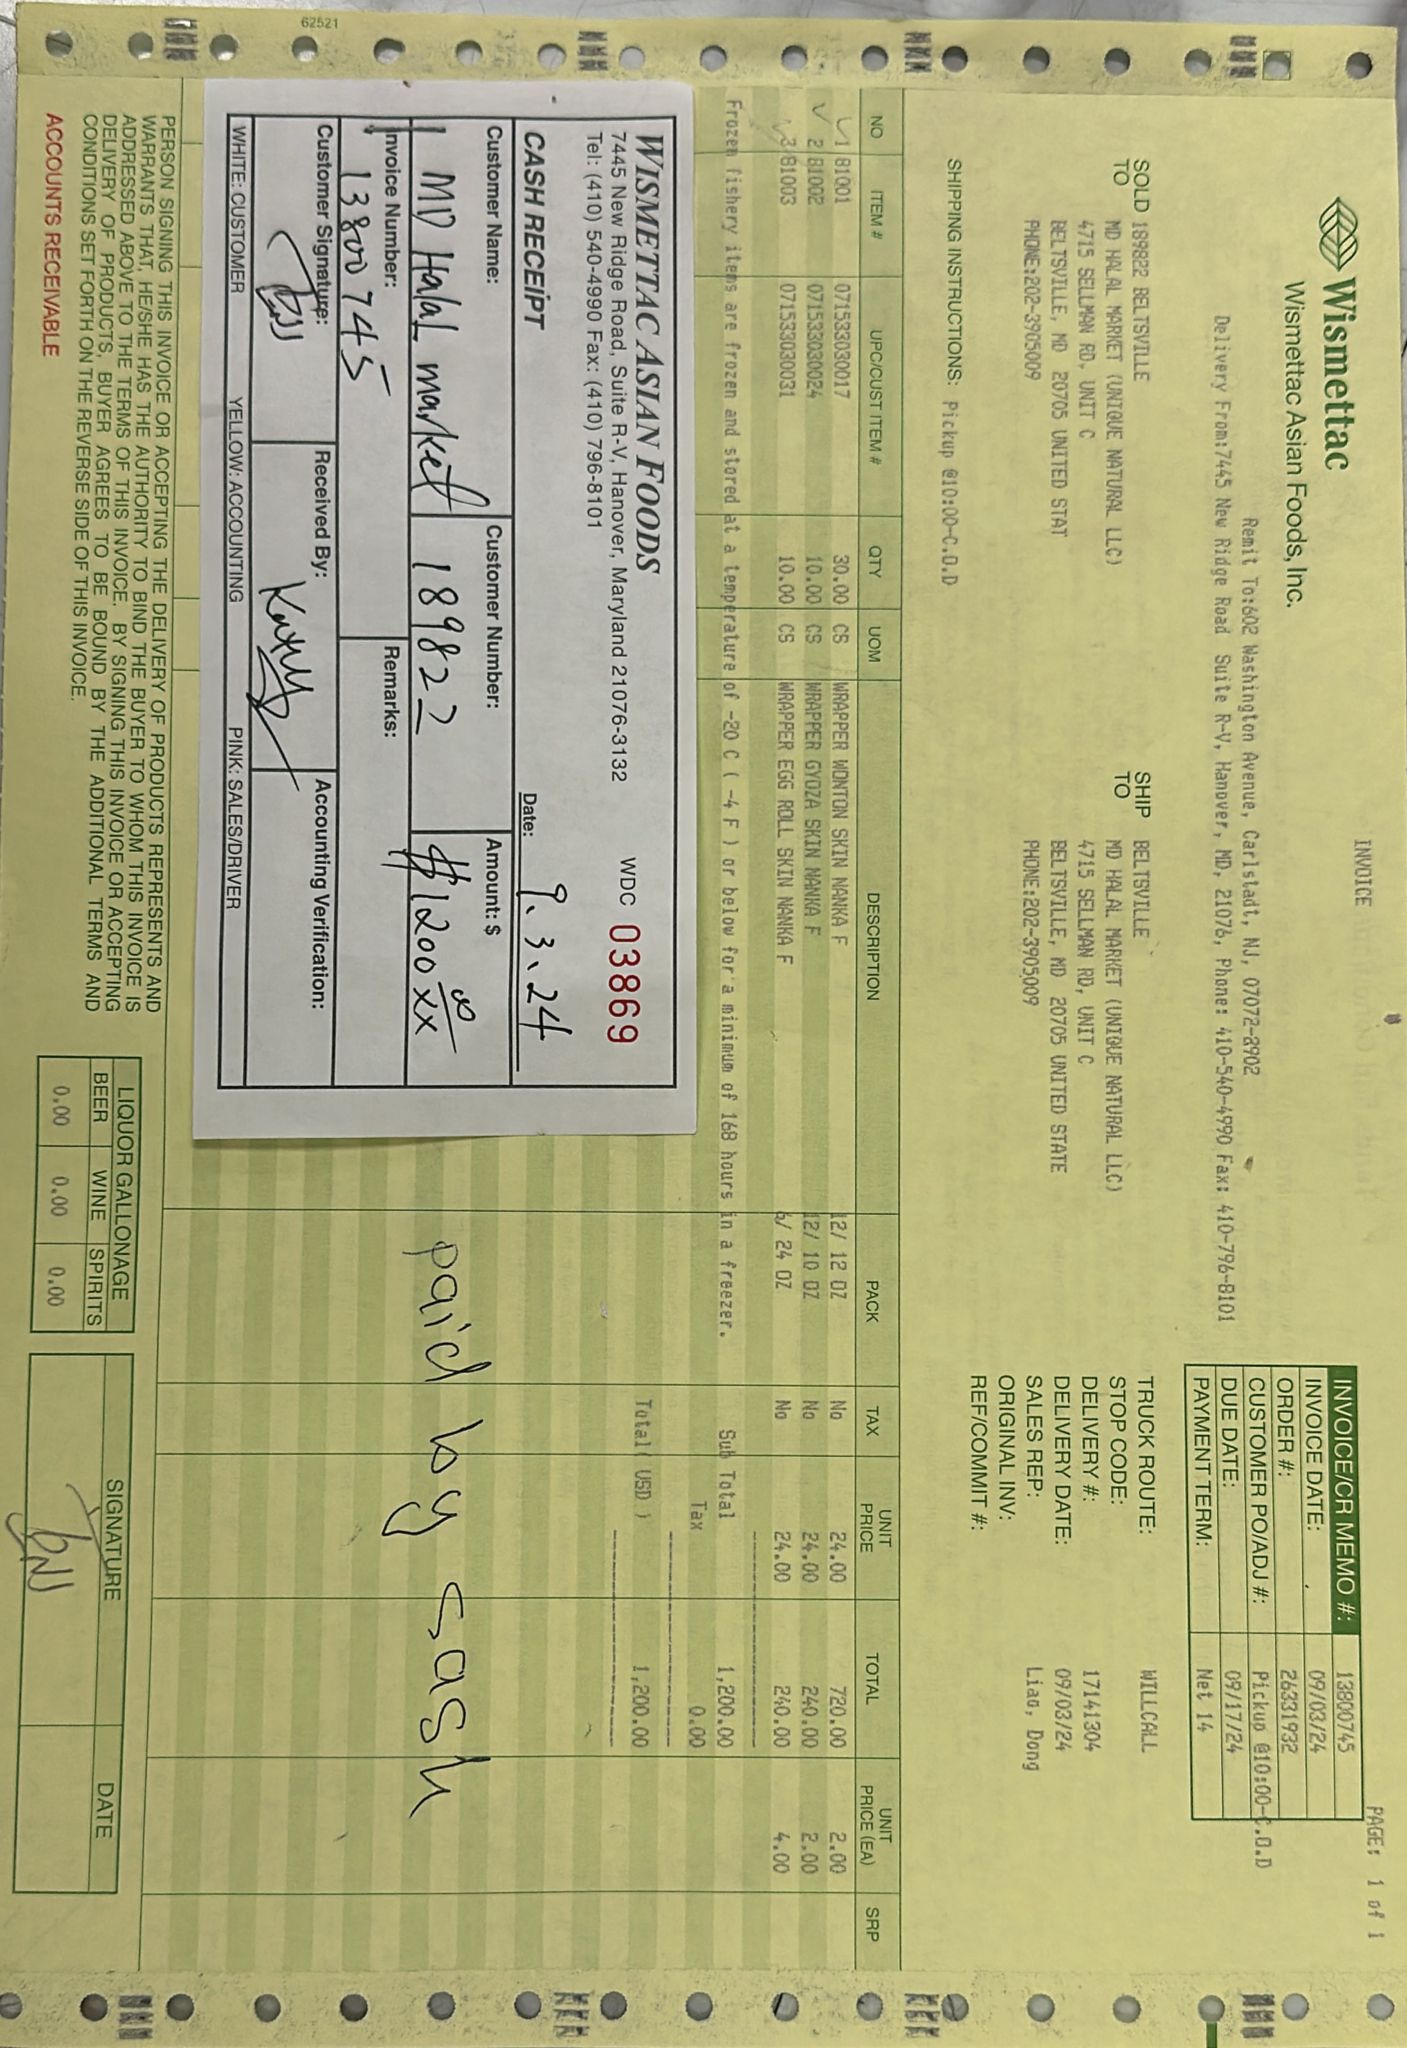 62521
INVOICE
PAGE: 1 of 1
Wismettac
Wismettac Asian Foods, Inc.
Remit To:602 Washington Avenue, Carlstadt, NJ, 07072-2902
Delivery From:7445 New Ridge Road Suite R-V, Hanover, MD, 21076, Phone: 410-540-4990 Fax: 410-796-8101
INVOICE/CR MEMO #: 13800745
INVOICE DATE: 09/03/24
ORDER #: 26331932
CUSTOMER PO/ADJ #: Pickup @10:00-C.O.D
DUE DATE: 09/17/24
PAYMENT TERM: Net 14
SOLD TO 189822 BELTSVILLE
MD HALAL MARKET (UNIQUE NATURAL LLC)
4715 SELLMAN RD, UNIT C
BELTSVILLE, MD 20705 UNITED STAT
PHONE:202-3905009
SHIP TO BELTSVILLE
MD HALAL MARKET (UNIQUE NATURAL LLC)
4715 SELLMAN RD, UNIT C
BELTSVILLE, MD 20705 UNITED STATE
PHONE:202-3905009
TRUCK ROUTE: WILLCALL
STOP CODE:
DELIVERY #: 17141304
DELIVERY DATE: 09/03/24
SALES REP: Liao, Dong
ORIGINAL INV:
REF/COMMIT #:
SHIPPING INSTRUCTIONS: Pickup @10:00-C.O.D
NO ITEM # UPC/CUST ITEM # QTY UOM DESCRIPTION PACK TAX UNIT PRICE TOTAL UNIT PRICE (EA) SRP
1 81001 071533030017 30.00 CS WRAPPER WONTON SKIN NANKA F 12/ 12 OZ No 24.00 720.00 2.00
2 81002 071533030024 10.00 CS WRAPPER GYOZA SKIN NANKA F 12/ 10 OZ No 24.00 240.00 2.00
3 81003 071533030031 10.00 CS WRAPPER EGG ROLL SKIN NANKA F 6/ 24 OZ No 24.00 240.00 4.00
Frozen fishery items are frozen and stored at a temperature of -20 C ( -4 F ) or below for a minimum of 168 hours in a freezer.
Sub Total 1,200.00
Tax 0.00
Total( USD ) 1,200.00
paid by cash
WISMETTAC ASIAN FOODS
7445 New Ridge Road, Suite R-V, Hanover, Maryland 21076-3132
Tel: (410) 540-4990 Fax: (410) 796-8101
WDC 03869
CASH RECEIPT
Date: 9.3.24
Customer Name: Customer Number: Amount: $
MD Halal market 189822 $1200 00/xx
Invoice Number: Remarks:
13800745
Customer Signature: Received By: Accounting Verification:
Kathy
WHITE: CUSTOMER YELLOW: ACCOUNTING PINK: SALES/DRIVER
PERSON SIGNING THIS INVOICE OR ACCEPTING THE DELIVERY OF PRODUCTS REPRESENTS AND
WARRANTS THAT, HE/SHE HAS THE AUTHORITY TO BIND THE BUYER TO WHOM THIS INVOICE IS
ADDRESSED ABOVE TO THE TERMS OF THIS INVOICE. BY SIGNING THIS INVOICE OR ACCEPTING
DELIVERY OF PRODUCTS, BUYER AGREES TO BE BOUND BY THE ADDITIONAL TERMS AND
CONDITIONS SET FORTH ON THE REVERSE SIDE OF THIS INVOICE.
ACCOUNTS RECEIVABLE
LIQUOR GALLONAGE
BEER WINE SPIRITS
0.00 0.00 0.00
SIGNATURE DATE